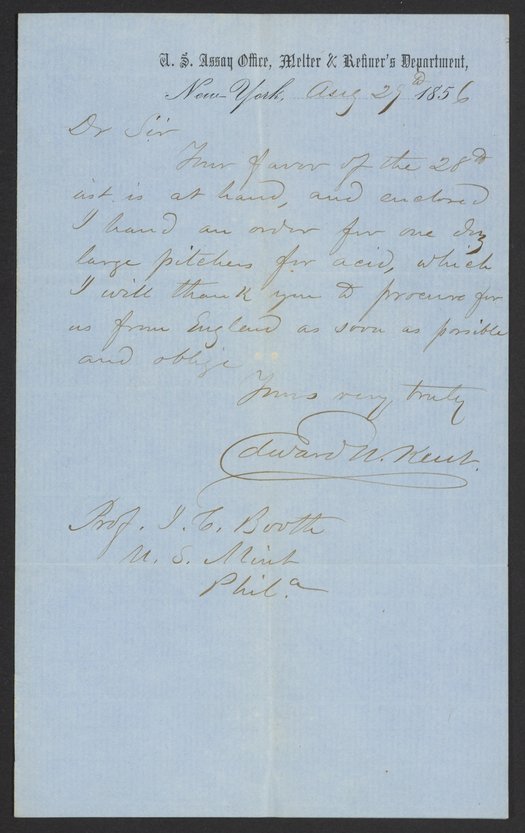 U. S. Assay Office, Melter & Refiner's Department,
New York, Aug 29d 1856
Dr Sir
Your favor of the 28d
inst is at hand, and enclosed
I hand an order for one doz
large pitchers for acid, which
I will thank you to procure for
us from England as soon as possible
and oblige
Yours very truly
Edward N. Kent.
Prof. J. C. Booth
U. S. Mint
Phila.